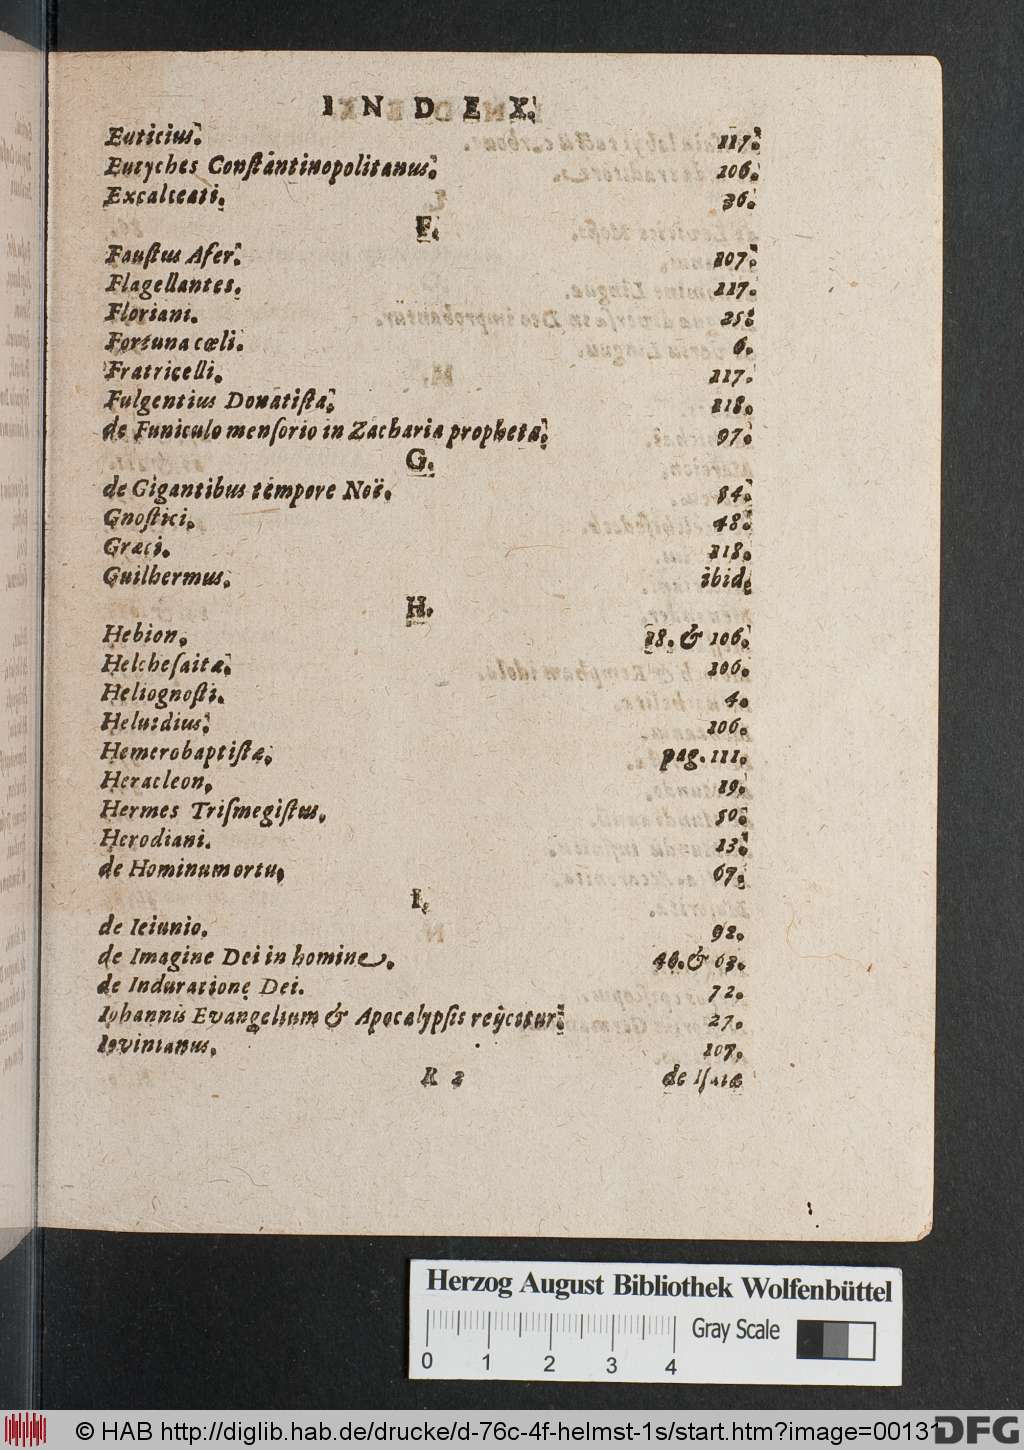 INDEX.
Euticius. 117.
Eutyches Conſtantinopolitanus. 106.
Excalceati. 36.
F.
Fauſtus Afer. 107.
Flagellantes. 117.
Floriani. 25.
Fortuna cœli. 6.
Fratricelli. 117.
Fulgentius Donatiſta. 118.
de Funiculo menſorio in Zacharia propheta. 97.
G.
de Gigantibus tempore Noë. 84.
Gnoſtici. 48.
Græci. 118.
Guilhermus. ibid.
H.
Hebion. 18. & 106.
Helcheſaitæ. 106.
Heliognoſti. 4.
Heluidius. 106.
Hemerobaptiſtæ. pag. 111.
Heracleon. 19.
Hermes Triſmegiſtus. 50.
Herodiani. 13.
de Hominum ortu. 67.
I.
de Ieiunio. 92.
de Imagine Dei in homine. 46. & 63.
de Induratione Dei. 72.
Iohannis Evangelium & Apocalypſis reijcitur. 27.
Iovinianus. 107.
R 2 de Iſaiæ
Herzog August Bibliothek Wolfenbüttel
0 1 2 3 4 Gray Scale
© HAB http://diglib.hab.de/drucke/d-76c-4f-helmst-1s/start.htm?image=00131 DFG